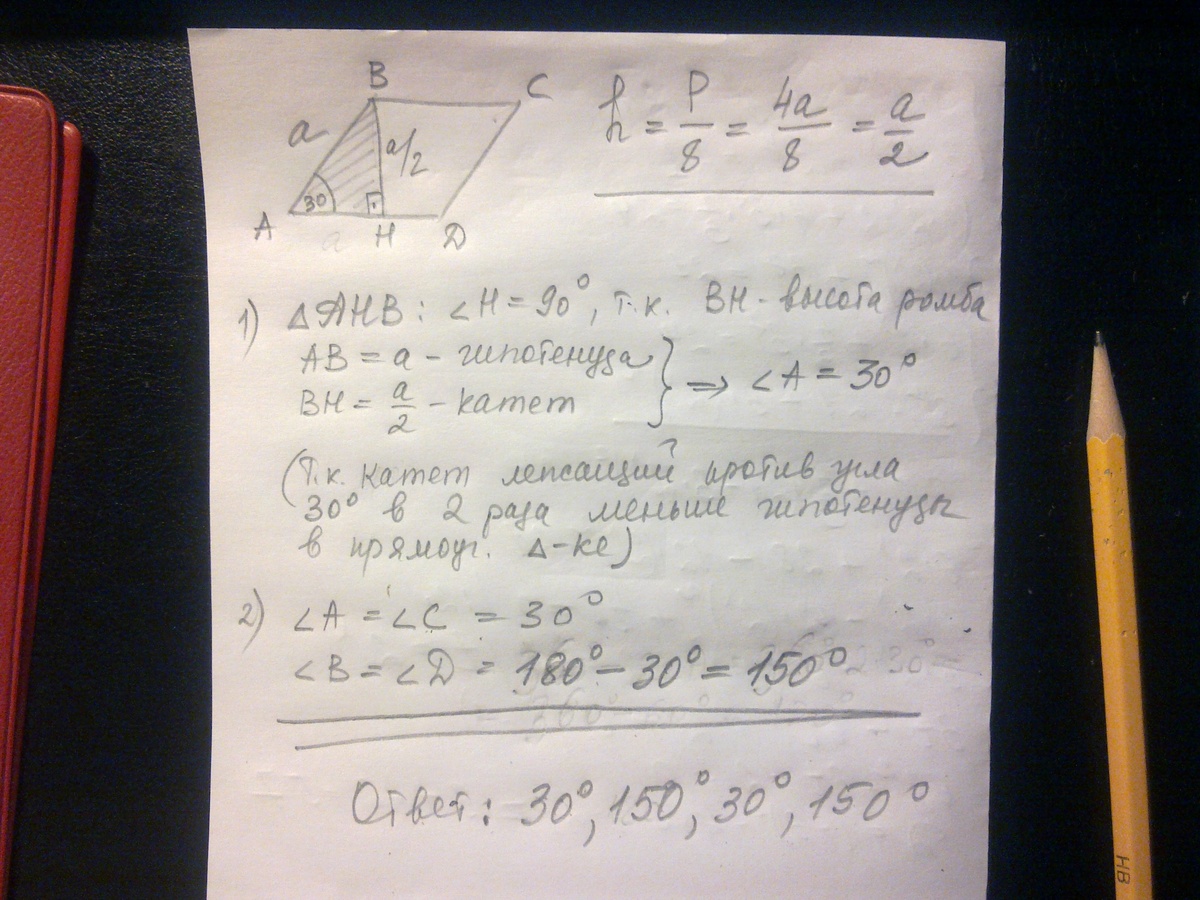 B
C
a
a/2
30
A
H
D
h = P/8 = 4a/8 = a/2
1) △AHB: ∠H = 90°, т.к. BH - высота ромба
AB = a - гипотенуза
BH = a/2 - катет
} ⇒ ∠A = 30°
(т.к. катет лежащий против угла
30° в 2 раза меньше гипотенузы
в прямоуг. △-ке)
2) ∠A = ∠C = 30°
∠B = ∠D = 180° - 30° = 150°
Ответ: 30°, 150°, 30°, 150°
HB